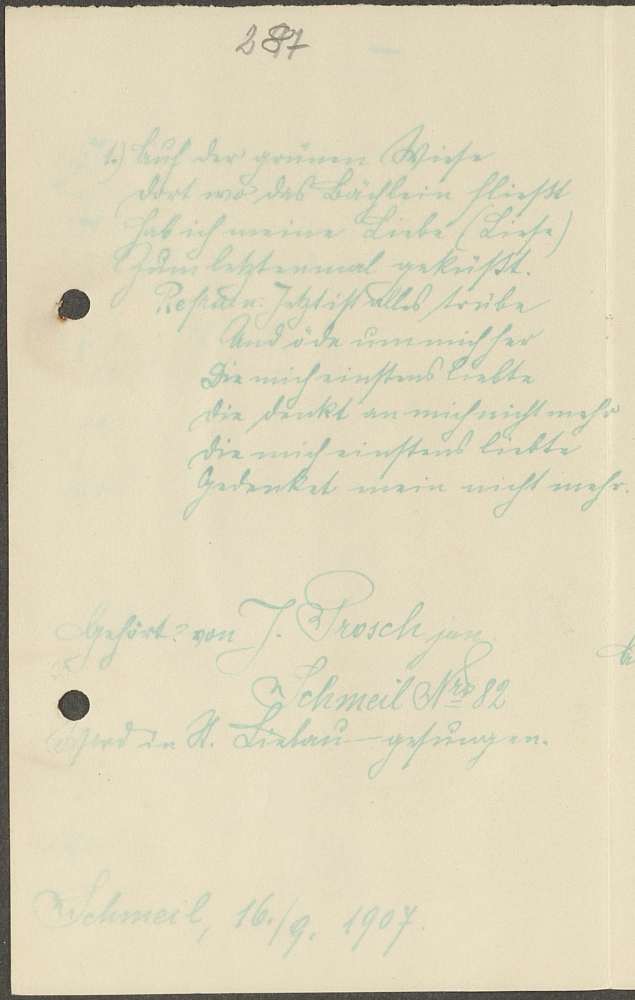 287
1.) Auf der grünen Wiese
dort wo das Bächlein fließt
hab ich meine Liebe (Liese)
Zum letztenmal geküßt.
Refrain: Jetzt ist alles trübe
Und öde um mich her
Die mich einstens liebte
Die denkt an mich nicht mehr
Die mich einstens liebte
Gedenket mein nicht mehr.
Gehört? von J. Prosch jun.
Schmeil Nro 82
Wird in St. Liebau gesungen.
Schmeil, 16./9. 1907.